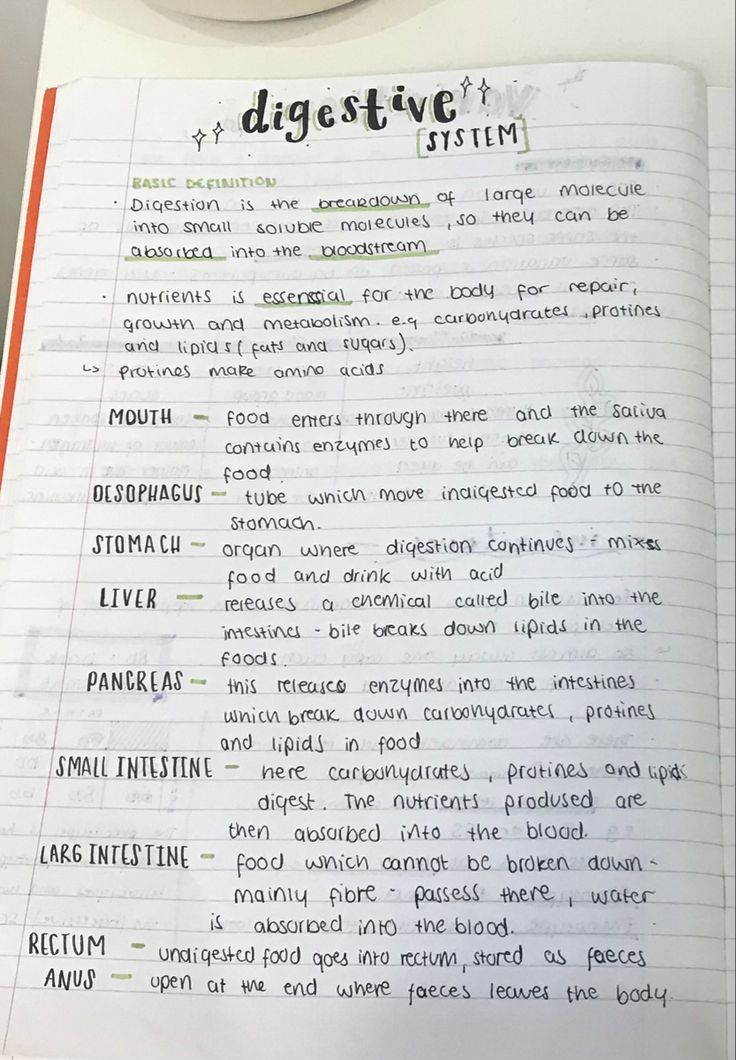 digestive
[SYSTEM]
BASIC DEFINITION
· Digestion is the breakdown of large molecule
into small soluble molecules, so they can be
absorbed into the bloodstream
· nutrients is essensial for the body for repair,
growth and metabolism. e.g carbohydrates, protines
and lipids (fats and sugars).
↳ protines make amino acids
MOUTH – food enters through there and the saliva
contains enzymes to help break down the
food.
OESOPHAGUS – tube which move indigested food to the
stomach.
STOMACH – organ where digestion continues - mixes
food and drink with acid
LIVER – releases a chemical called bile into the
intestines - bile breaks down lipids in the
foods.
PANCREAS – this releases enzymes into the intestines
which break down carbohydrates, protines
and lipids in food
SMALL INTESTINE – here carbohydrates, protines and lipids
digest. The nutrients prodused are
then absorbed into the blood.
LARG INTESTINE – food which cannot be broken down -
mainly fibre - passess there, water
is absorbed into the blood.
RECTUM – undigested food goes into rectum, stored as faeces
ANUS – open at the end where faeces leaves the body.